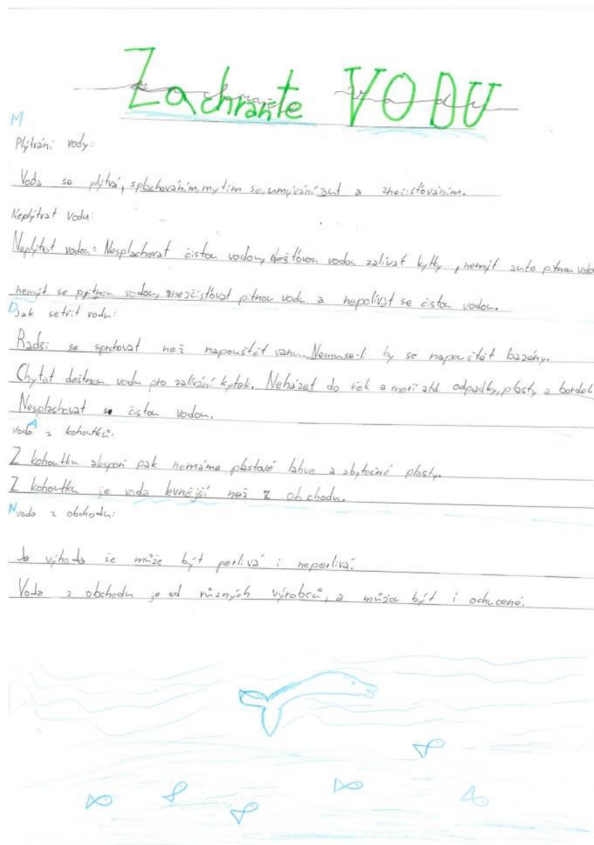 Zachraňte VODU
M
Plýtvání vody:
Voda se plýtvá, splachováním, mytím se, umývání aut a znečisťováním.
Neplýtvat vodu:
Neplýtvat vodou: Nesplachovat čistou vodou, dešťovou vodou zalívat kytky, nemýt auto pitnou vodou
nemýt se pitnou vodou, neznečisťovat pitnou vodu a nepolívat se čistou vodou.
D
Jak šetřit vodu:
Radši se sprchovat než napouštět vanu. Nemuseli by se napouštět bazény.
Chytat dešťnou vodu pro zalívání kytek. Neházet do řek a moří atd. odpadky, plasty a bordel
Nesplachovat se čistou vodou.
A
voda z kohoutků:
Z kohoutku alespoň pak nemáme plastové lahve a zbytečné plasty.
Z kohoutku je voda levnější než z obchodu.
N
voda z obchodu:
Je výhoda že může být perlivá i neperlivá.
Voda z obchodu je od různých výrobců, a může být i ochucené.